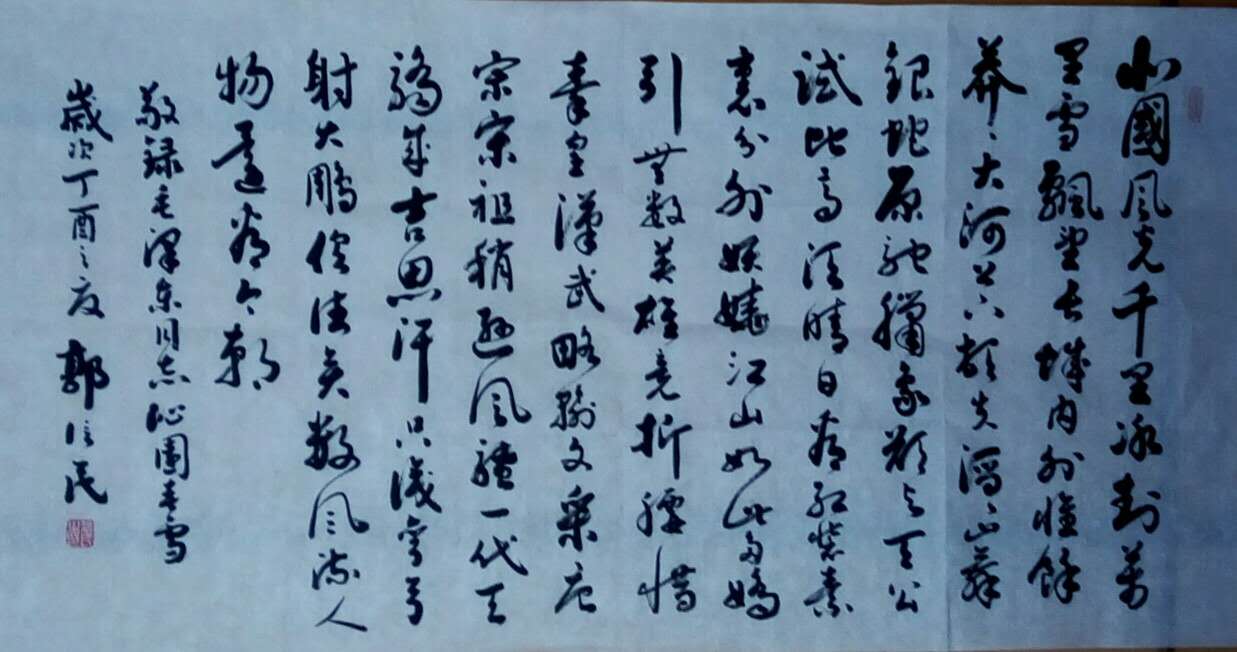 北國風光千里冰封萬
里雪飄望長城內外惟餘
莽〻大河上下頓失滔〻山舞
銀蛇原馳臘象欲與天公
試比高須晴日看紅裝素
裹分外妖嬈江山如此多嬌
引無數英雄競折腰惜
秦皇漢武略輸文采唐
宗宋祖稍遜風騷一代天
驕成吉思汗只識彎弓
射大鵰俱往矣數風流人
物還看今朝
敬録毛澤東同志沁園春雪
歲次丁酉之夏 郭信民